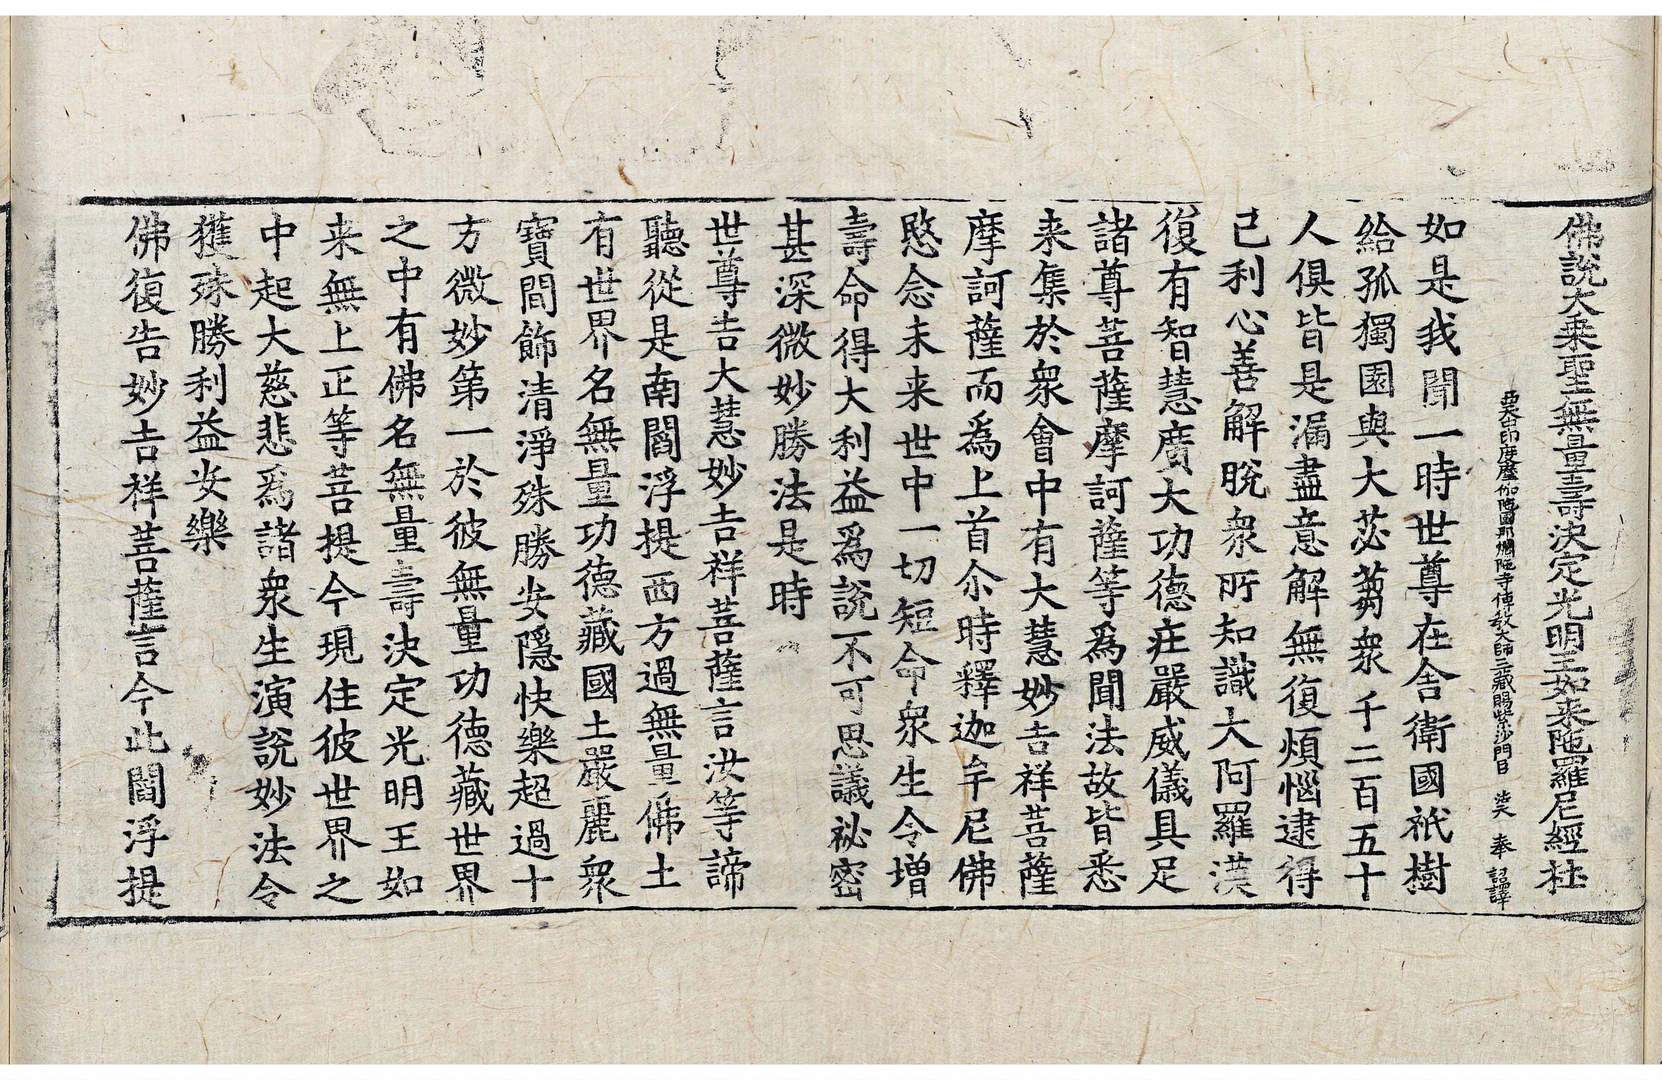 佛說大乘聖無量壽決定光明王如來陁羅尼經 杜
西天中印度摩伽陁國那爛陁寺傳教大師三藏賜紫沙門臣 法天 奉 詔譯
如是我聞一時世尊在舍衛國祇樹
給孤獨園與大苾蒭衆千二百五十
人俱皆是漏盡意解無復煩惱逮得
己利心善解脫衆所知識大阿羅漢
復有智慧廣大功德庄嚴威儀具足
諸尊菩薩摩訶薩等爲聞法故皆悉
来集於衆會中有大慧妙吉祥菩薩
摩訶薩而爲上首尒時釋迦牟尼佛
愍念未来世中一切短命衆生令增
壽命得大利益爲說不可思議祕密
甚深微妙勝法是時
世尊告大慧妙吉祥菩薩言汝等諦
聽從是南閻浮提西方過無量佛土
有世界名無量功德藏國土嚴麗衆
寶間飾清淨殊勝安隱快樂超過十
方微妙第一於彼無量功德藏世界
之中有佛名無量壽決定光明王如
来無上正等菩提今現住彼世界之
中起大慈悲爲諸衆生演說妙法令
獲殊勝利益安樂
佛復告妙吉祥菩薩言今此閻浮提